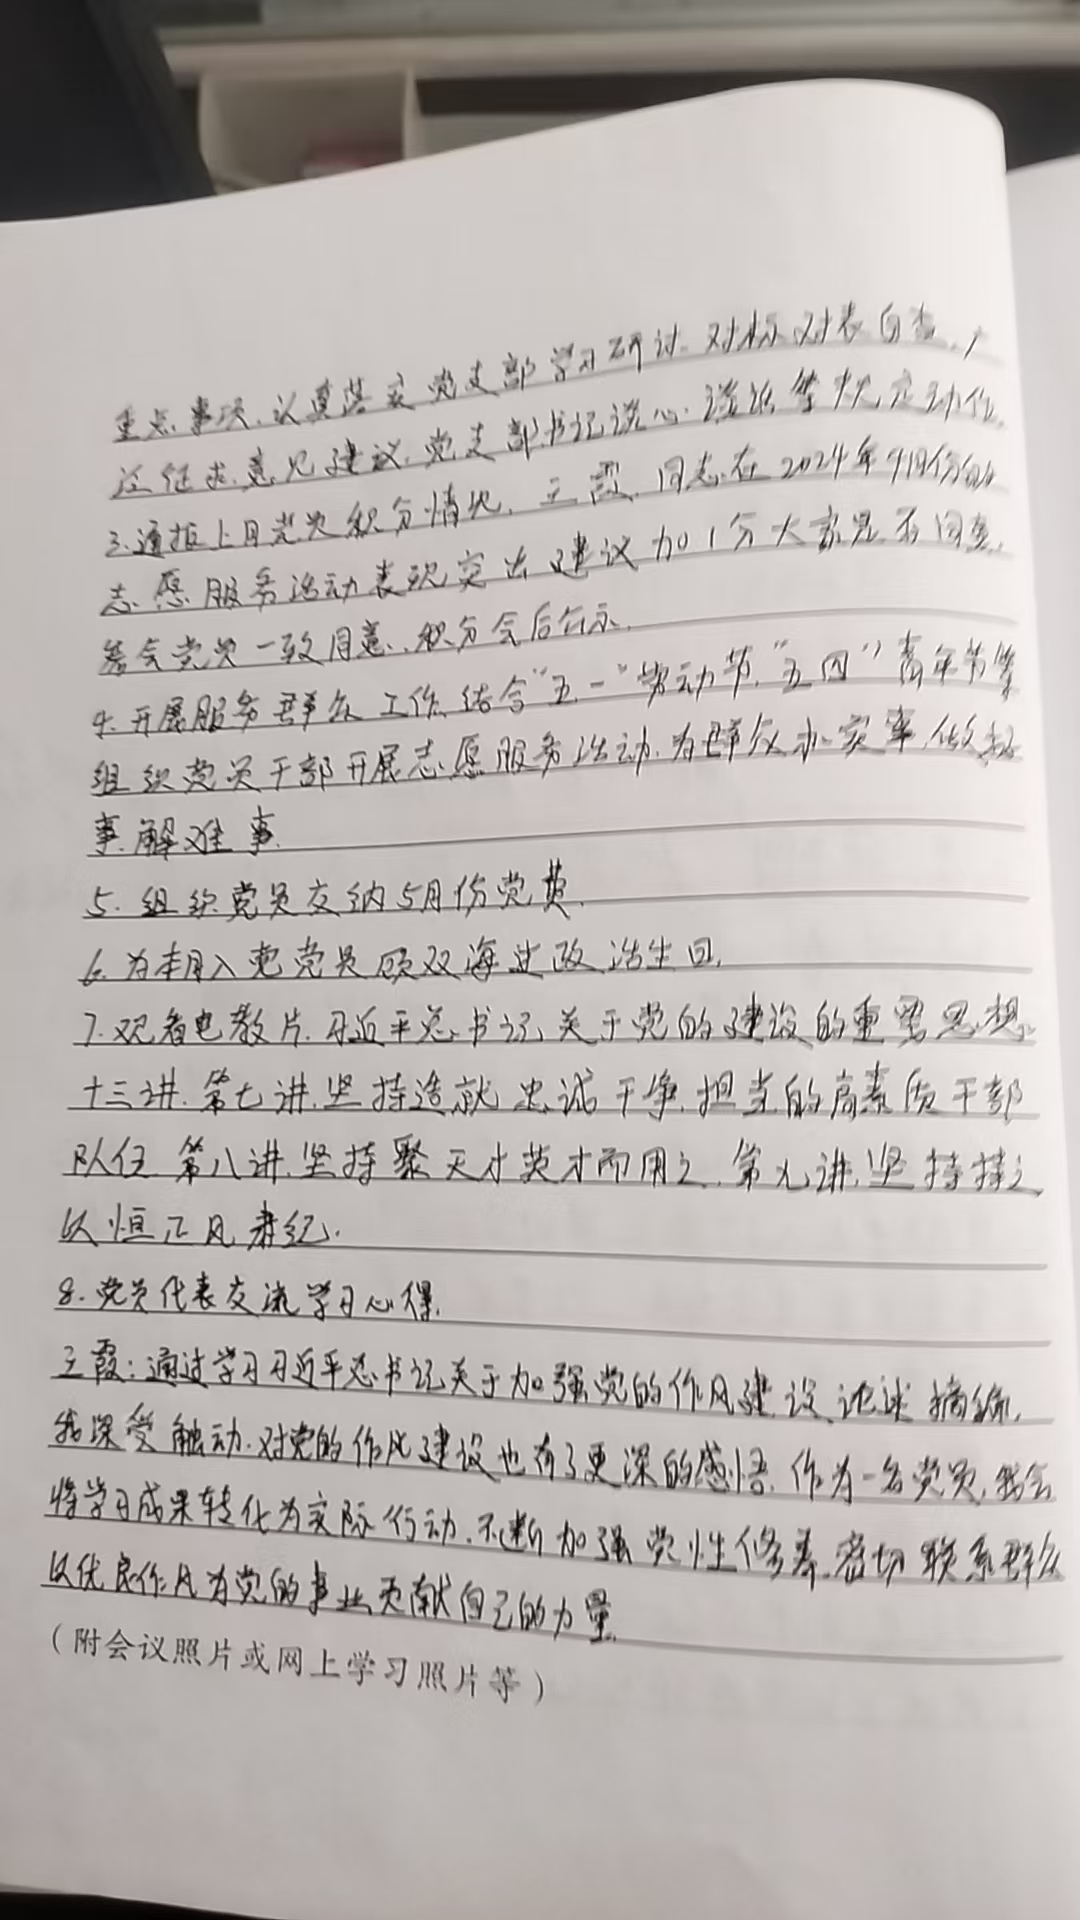 重点事项、认真落实党支部学习研讨、对标对表自查、广
泛征求意见建议、党支部书记谈心谈话等规定动作。
3.通报上月党员积分情况。王霞同志在2024年4月份的
志愿服务活动表现突出建议加1分大家是否同意,
参会党员一致同意、积分会后公示。
4.开展服务群众工作,结合“五一”劳动节,“五四”青年节等
组织党员干部开展志愿服务活动,为群众办实事,做好
事,解难事.
5.组织党员交纳5月份党费.
6.为本月入党党员顾双海过政治生日.
7.观看电教片,习近平总书记关于党的建设的重要思想
十三讲,第七讲,坚持造就忠诚干净担当的高素质干部
队伍 第八讲,坚持聚天才英才而用之,第九讲,坚持持之
以恒正风肃纪.
8.党员代表交流学习心得.
王霞:通过学习习近平总书记关于加强党的作风建设论述摘编,
我深受触动,对党的作风建设也有了更深的感悟,作为一名党员,我会
将学习成果转化为实际行动,不断加强党性修养,密切联系群众
以优良作风为党的事业贡献自己的力量.
(附会议照片或网上学习照片等)